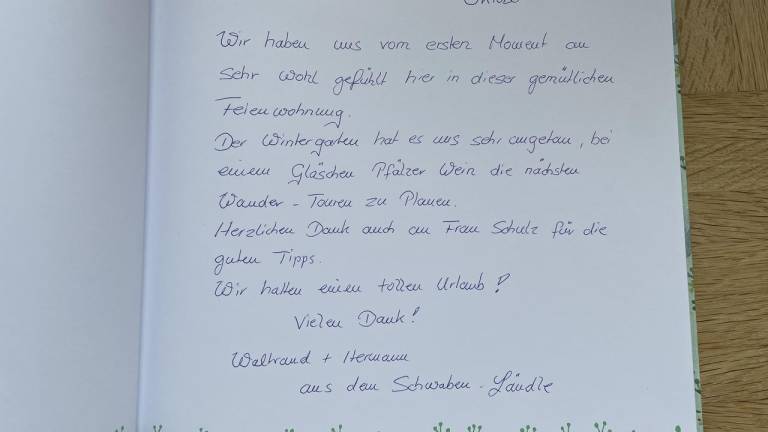 Wir haben uns vom ersten Moment an
sehr wohl gefühlt hier in dieser gemütlichen
Ferienwohnung.
Der Wintergarten hat es uns sehr angetan, bei
einem Gläschen Pfälzer Wein die nächsten
Wander-Touren zu Planen.
Herzlichen Dank auch an Frau Schulz für die
guten Tipps.
Wir hatten einen tollen Urlaub!
Vielen Dank!
Waltraud + Hermann
aus dem Schwaben-Ländle